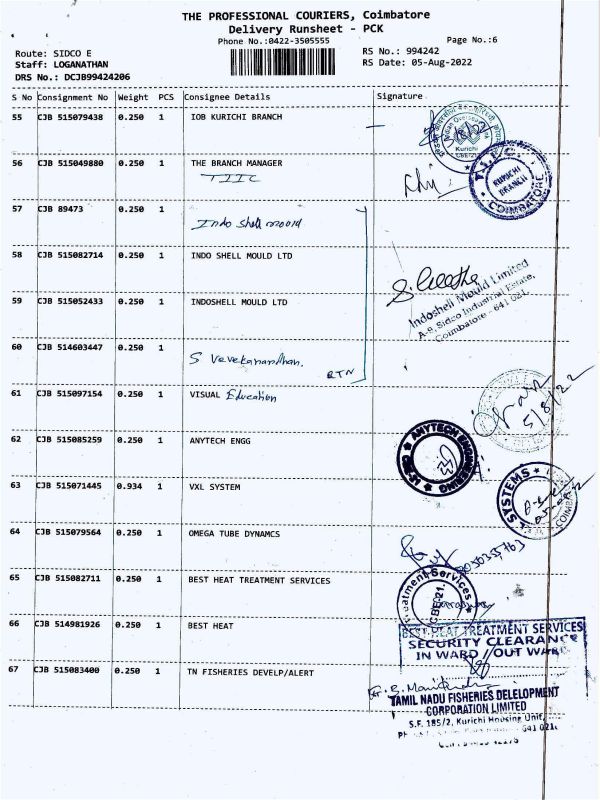 THE PROFESSIONAL COURIERS, Coimbatore
Delivery Runsheet - PCK
Phone No.:0422-3505555
Page No.:6
Route: SIDCO E
RS No.: 994242
Staff: LOGANATHAN
RS Date: 05-Aug-2022
DRS No.: DCJB99424206
S No Consignment No Weight PCS Consignee Details Signature
55 CJB 515079438 0.250 1 IOB KURICHI BRANCH
Kurichi
CBE/21
56 CJB 515049880 0.250 1 THE BRANCH MANAGER
TIIC
KURICHI
BRANCH
COIMBATORE
57 CJB 89473 0.250 1
Indo shell mould
58 CJB 515082714 0.250 1 INDO SHELL MOULD LTD
59 CJB 515052433 0.250 1 INDOSHELL MOULD LTD
Indoshell Mould Limited
A-9, Sidco Industrial Estate,
Coimbatore - 641 021.
60 CJB 514603447 0.250 1
S Vevekanandhan.
RTN
61 CJB 515097154 0.250 1 VISUAL Education
5/8/22
62 CJB 515085259 0.250 1 ANYTECH ENGG
ANYTECH ENGINEERING
63 CJB 515071445 0.934 1 VXL SYSTEM
SYSTEMS
64 CJB 515079564 0.250 1 OMEGA TUBE DYNAMCS
65 CJB 515082711 0.250 1 BEST HEAT TREATMENT SERVICES
Treatment Services
CBE-21.
66 CJB 514981926 0.250 1 BEST HEAT
BEST HEAT TREATMENT SERVICES
SECURITY CLEARANCE
IN WARD / OUT WARD
67 CJB 515083400 0.250 1 TN FISHERIES DEVELP/ALERT
TAMIL NADU FISHERIES DELELOPMENT
CORPORATION LIMITED
S.F. 185/2, Kurichi Housing Unit,